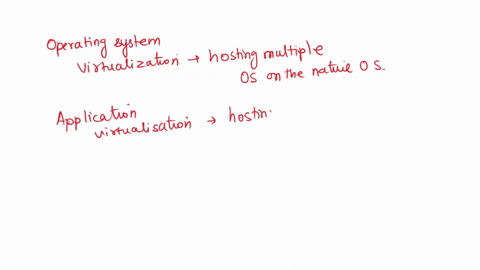 Operating system
Virtualization → hosting multiple
OS on the native OS.
Application
virtualisation → hostin